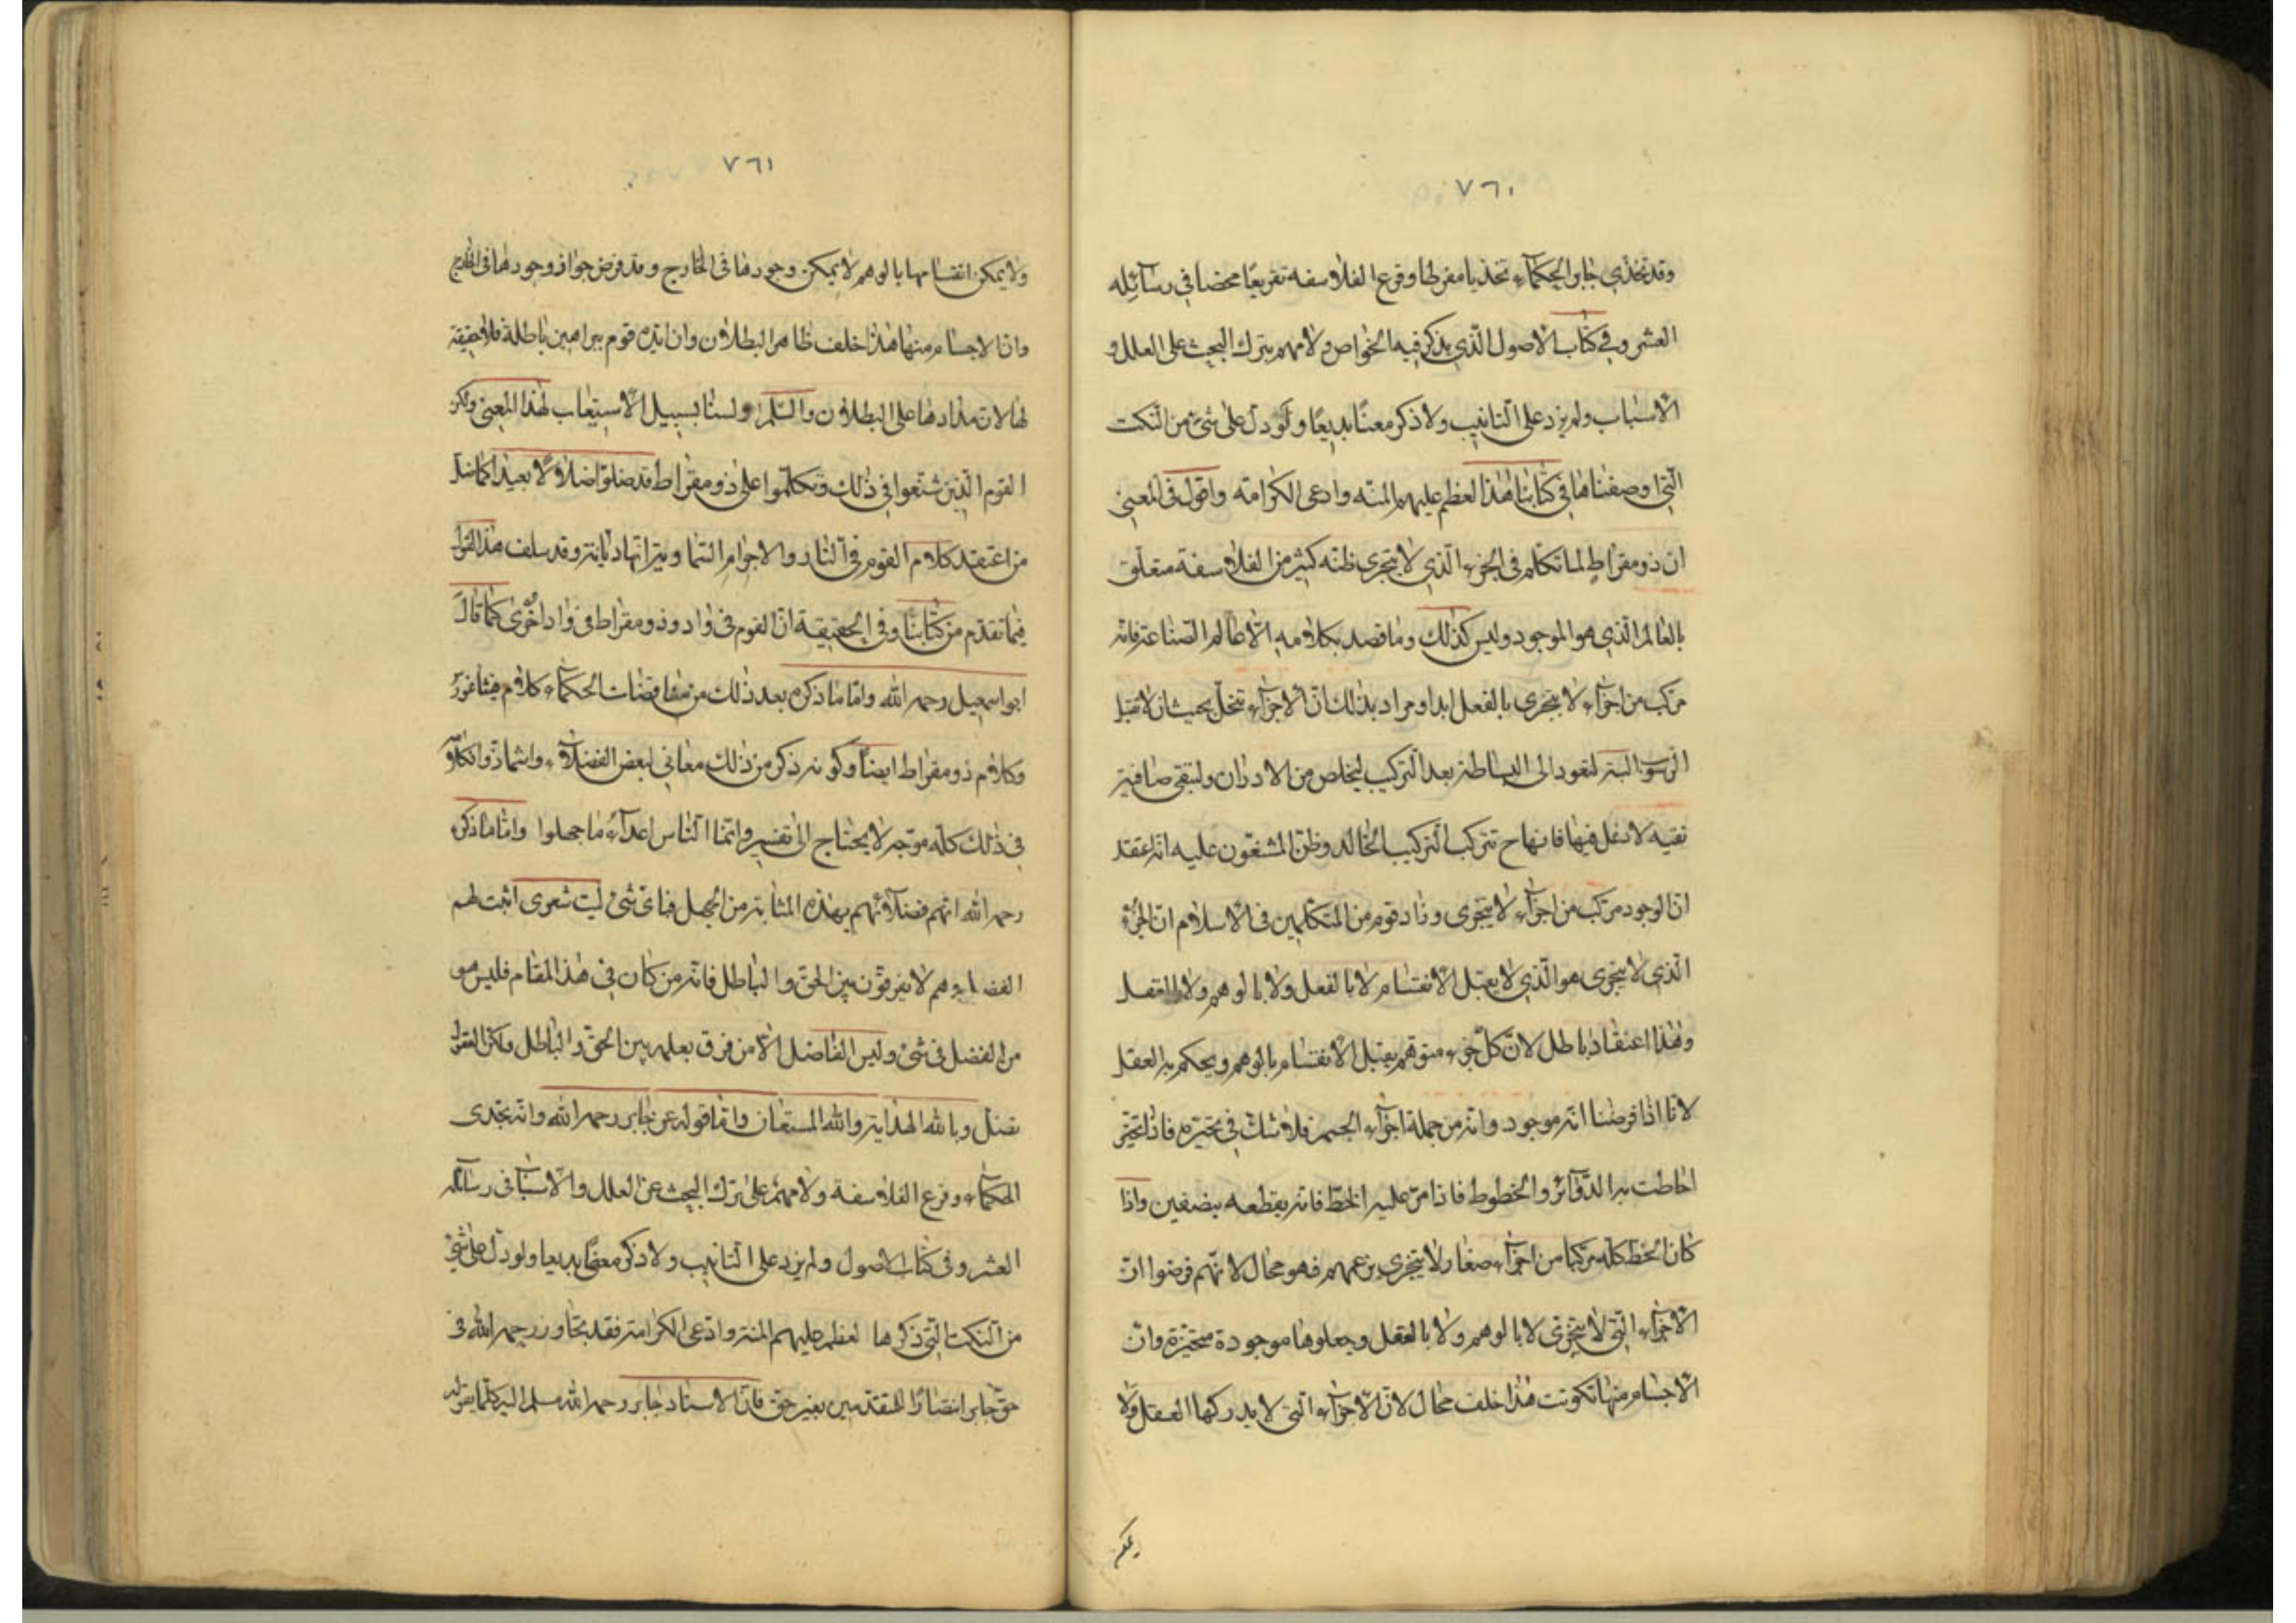 ٧٦٠
وقد تحذي جابر الحكماء تحذيا مفرطا وقرع الفلاسفه تقريعًا محضا في رسائله
العشر وفي كتاب الاصول الذي يذكر فيه الخواص ولامهم بترك البحث على العلل و
الاسباب ولم يزد على التانيب ولا ذكر معنًا بديعًا ولو دل على شئ من النكت
التي وصفناها في كتابنا هذا لعظم عليهم المنه وادعى الكرامه واقول في المعنى
ان ذومقراط لما تكلم في الجزء الذي لا يتجزى ظنه كثير من الفلاسفة متعلق
بالعالم الذي هو الموجود وليس كذلك وما قصد بكلامه الا عالم الصناعة فانه
مركب من اجزاء لا يتجزى بالفعل ابدا ومراد بذلك ان الاجزاء تنحل بحيث ان لا تقبل
الرسوب البتة لتعود الى البساطة بعد التركيب ليخلص من الادران ولتبقى صافية
نقيه لا دغل فيها فانها ح تتركب التركيب الخالد وظن المشنعون عليه انه اعتقد
ان الوجود مركب من اجزاء لا يتجزى وزاد قوم من المتكلمين في الاسلام ان الجزء
الذي لا يتجزى هو الذي لا يقبل الانقسام لا بالفعل ولا بالوهم ولا بالعقل
وهذا اعتقاد باطل لان كل جزء متوهم يقبل الانقسام بالوهم ويحكم به العقل
لانا اذا فرضنا انه موجود وانه من جملة اجزاء الجسم فلا شك في تحيزه فاذا تحيز
احاطت به الدوائر والخطوط فاذا مر عليه الخط فانه يقطعه بنصفين واذا
كان الخط كله مركبا من اجزاء صغار لا يتجزى بزعمهم فهو محال لانهم فرضوا ان
الاجزاء التي لا يتجزى لا بالوهم ولا بالعقل وجعلوها موجودة متحيزة وان
الاجسام منها تكونت هذا خلف محال لان الاجزاء التي لا يدركها العقل ولا
يمكن
٧٦١
ولا يمكن انقسامها بالوهم لا يمكن وجودها في الخارج وقد فرض جواز وجودها في الخارج
وان الاجسام منها هذا خلف ظاهر البطلان وان ايده قوم ببراهين باطلة فلا حقيقة
لها لان مدارها على البطلان والسلم ولسنا بسبيل الاستيعاب لهذا المعنى ولكن
القوم الذين شنعوا في ذلك وتكلموا على ذومقراط قد ضلوا ضلالا بعيدا كما ضل
من اعتقد كلام القوم في النار والاجرام السماوية انها ديانة وقد سلف هذا القول
فيما تقدم من كتابنا وفي الحقيقة ان القوم في واد وذومقراط في واد اخرى كما قال
ابو اسمعيل رحمه الله واما ما ذكره بعد ذلك من مناقضات الحكماء كلام فيثاغورس
وكلام ذومقراط ايضا وكونه ذكر من ذلك معاني لبعض الفضلاء
في ذلك كله موجه لا يحتاج الى تفسير وانما الناس اعداء ما جهلوا واما ما ذكره
رحمه الله انهم فضلاء فهم بهذه المثابة من الجهل فاى شئ ليت شعرى اثبت لهم
الفضل وهم لا يفرقون بين الحق والباطل فانه من كان في هذا المقام فليس هو
من الفضل في شئ وليس الفاضل الا من فرق بعلمه بين الحق والباطل ولكن العقول
تضل وبالله الهداية والله المستعان واما قوله عن جابر رحمه الله وانه تحدى
الحكماء وقرع الفلاسفة ولامهم على ترك البحث عن العلل والاسباب في رسائله
العشر وفي كتاب الاصول ولم يزد على التانيب ولا ذكر معنًا بديعا ولو دل على شئ
من النكت التي ذكرها لعظم عليهم المنة وادعى الكرامة فقد تجاوز رحمه الله في
حق جابر انتصارًا للمتقدمين بغير حق فان الاستاد جابر رحمه الله مسلم اليه كلما يقوله